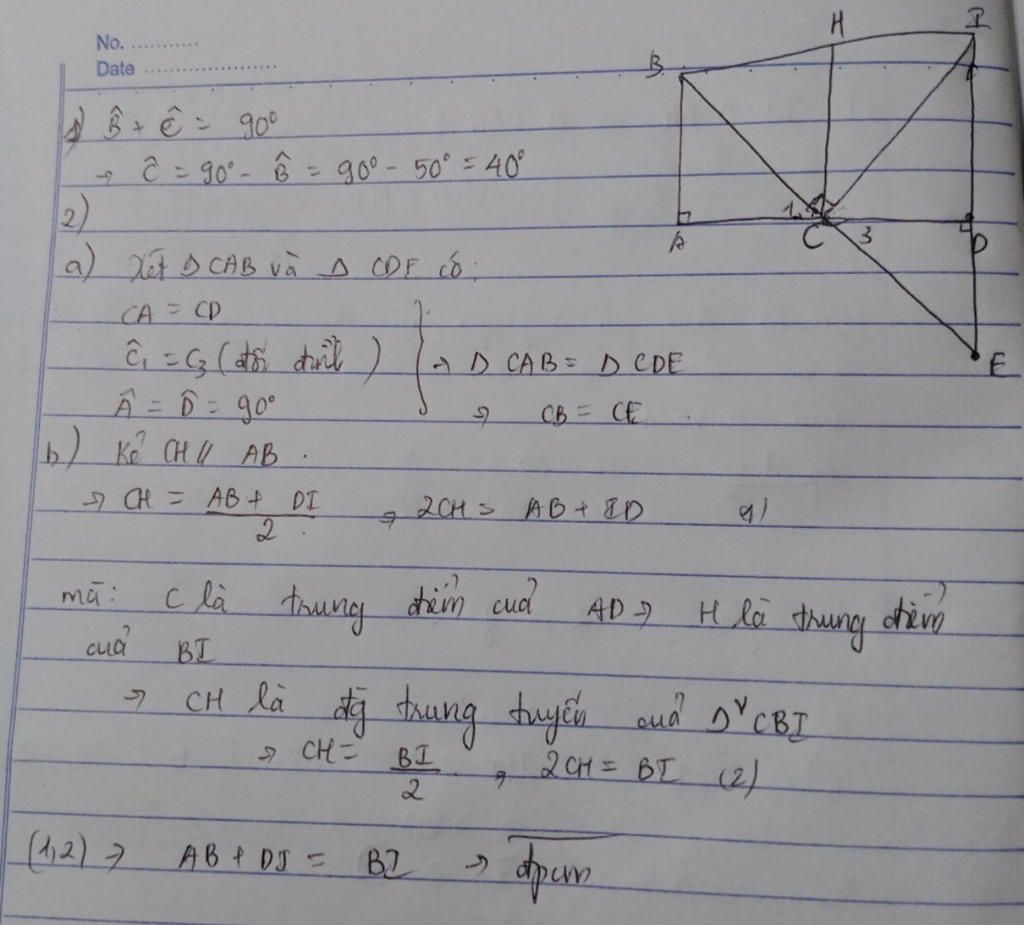 No. ...........
Date ....................
1) B̂ + Ĉ = 90°
→ Ĉ = 90° - B̂ = 90° - 50° = 40°
2)
a) Xét Δ CAB và Δ CDE có:
CA = CD
Ĉ₁ = C₃ (đối đỉnh)
Â = D̂ = 90°
→ Δ CAB = Δ CDE
→ CB = CE.
b) Kẻ CH // AB.
→ CH = (AB + DI)/2 → 2CH = AB + ID (1)
mà: C là trung điểm của AD → H là trung điểm
của BI
→ CH là đg trung tuyến của Δ^v CBI
→ CH = BI/2 → 2CH = BI (2)
(1,2) → AB + DI = BI → đpcm
H
I
B
1
A
C
3
D
E